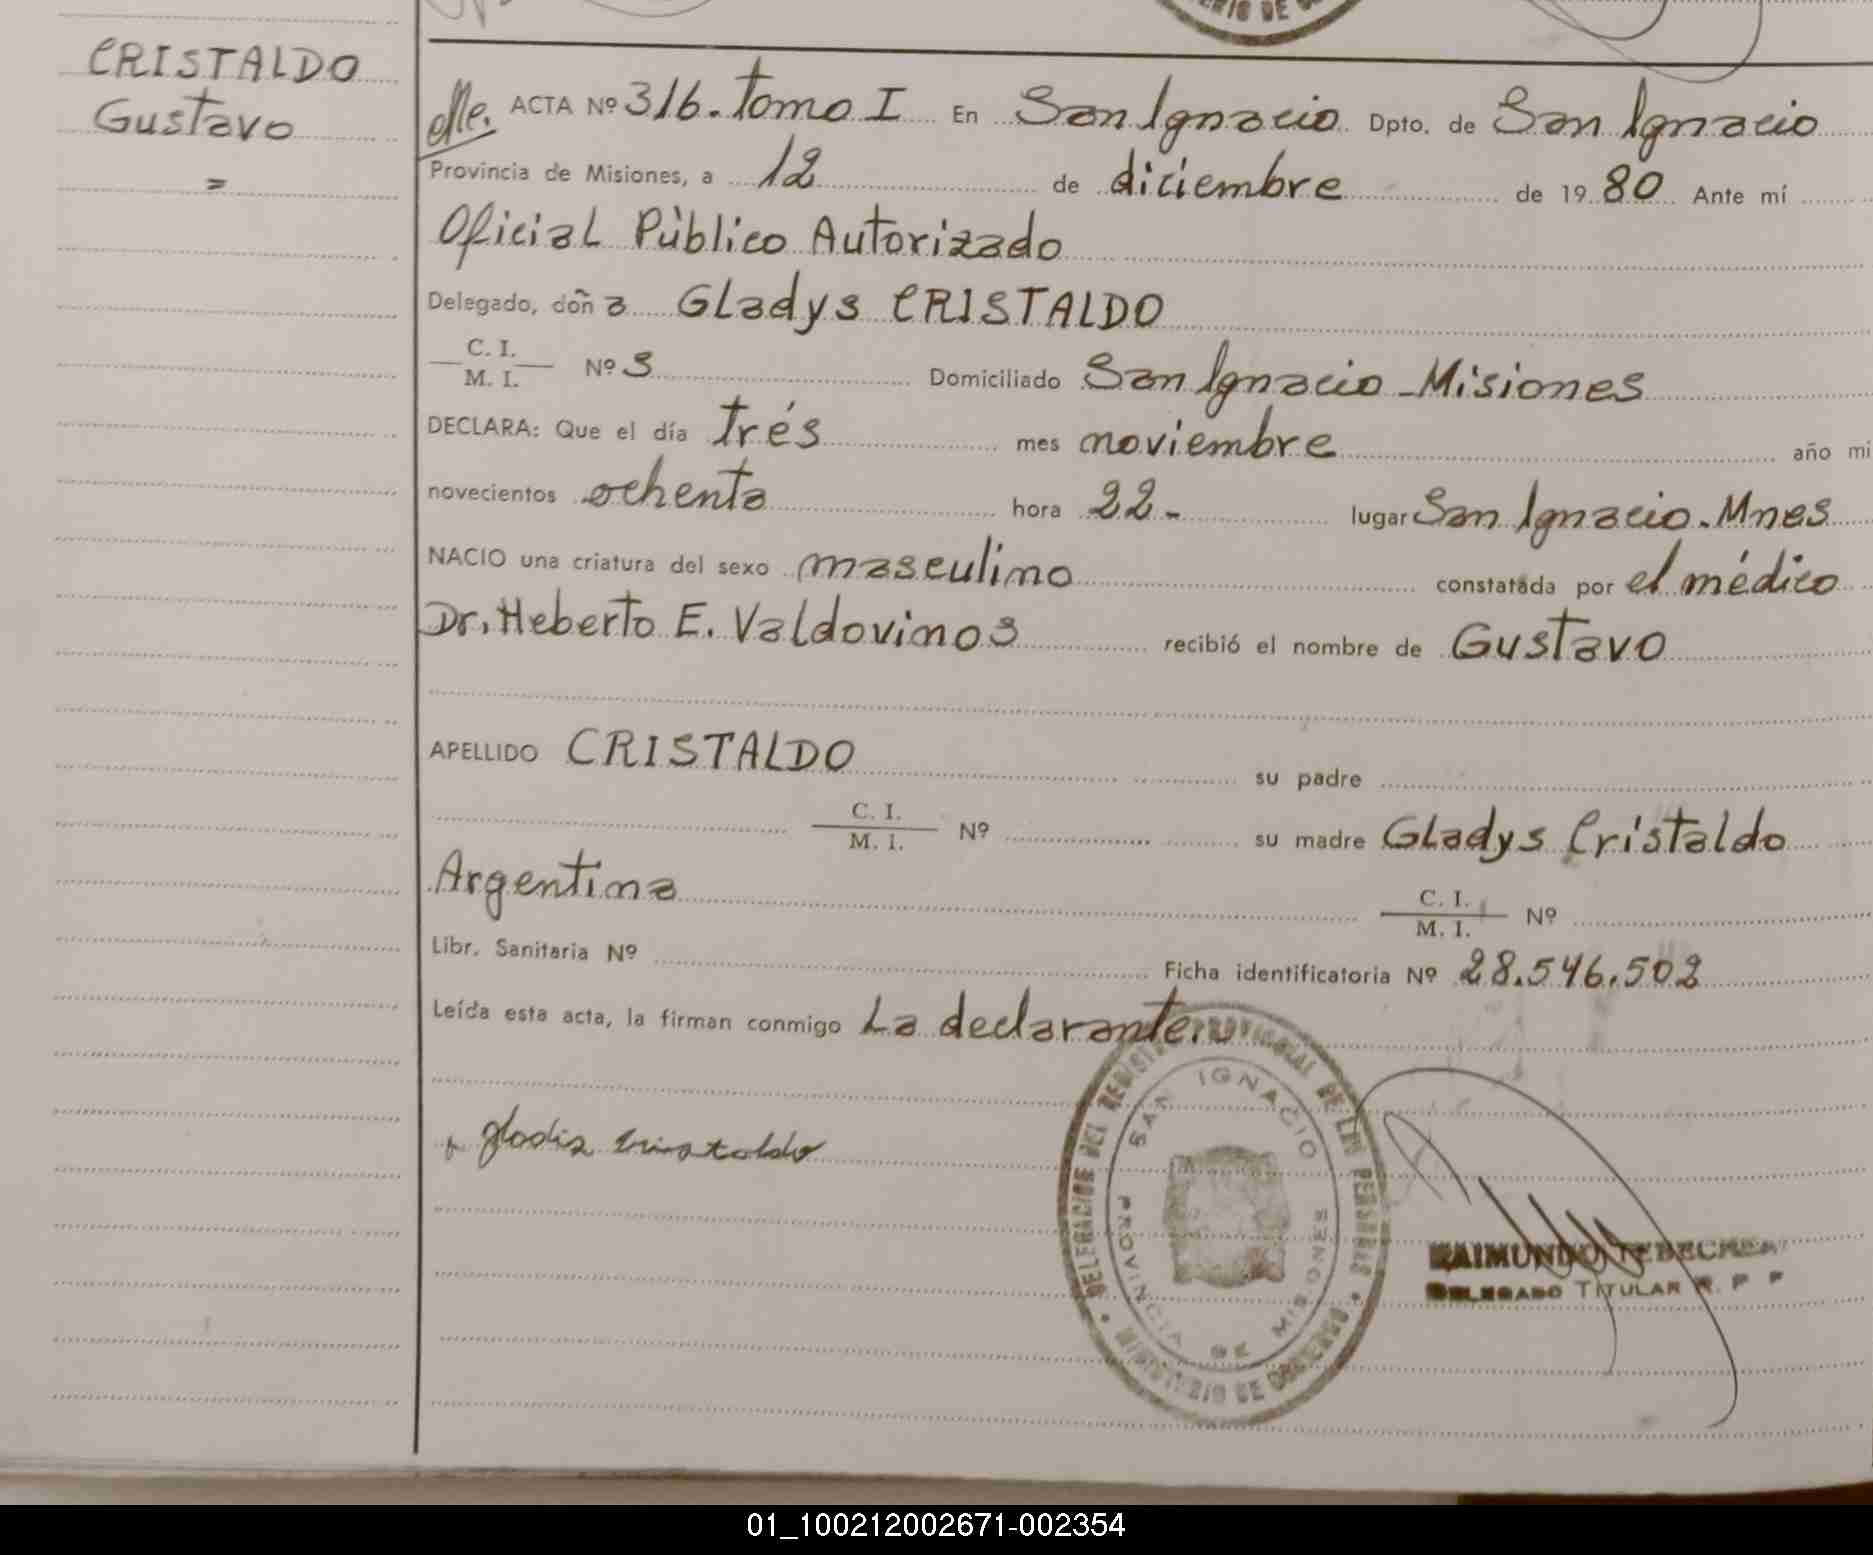 CRISTALDO
Gustavo
=
ACTA Nº 316. Tomo I En San Ignacio Dpto. de San Ignacio
Provincia de Misiones, a 12 de diciembre de 1980 Ante mí
Oficial Público Autorizado
Delegado, doña Gladys CRISTALDO
C. I.
M. I. Nº S Domiciliado San Ignacio - Misiones
DECLARA: Que el día trés mes noviembre año mi
novecientos ochenta hora 22- lugar San Ignacio. Mnes
NACIO una criatura del sexo masculino constatada por el médico
Dr. Heberto E. Valdovinos recibió el nombre de Gustavo
APELLIDO CRISTALDO su padre
C. I.
M. I. Nº su madre Gladys Cristaldo
Argentina C. I.
M. I. Nº
Libr. Sanitaria Nº Ficha identificatoria Nº 28.546.502
Leída esta acta, la firman conmigo La declarante.
gladis cristaldo
DELEGACION DEL REGISTRO PROVINCIAL DE LAS PERSONAS
SAN IGNACIO
PROVINCIA DE MISIONES
MINISTERIO DE GOBIERNO
RAIMUNDO
DELEGADO TITULAR R. P P
01_100212002671-002354